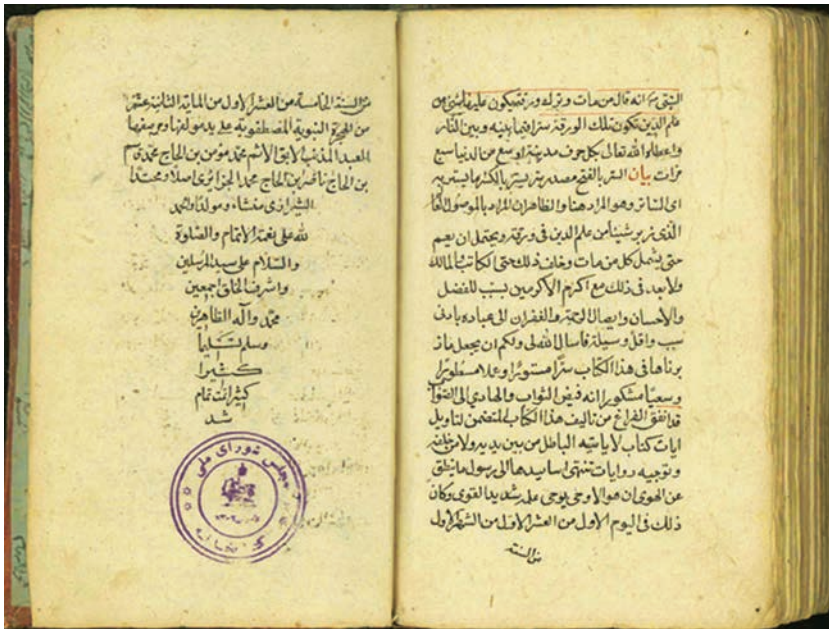 النبي ص انه قال من مات وترك ورقة يكون عليها شئ من
علم الدين تكون تلك الورقة سترا فيما بينه وبين النار
واعطاه الله تعالى بكل حرف مدينة اوسع من الدنيا سبع
مرات بيان الستر بالفتح مصدر ستر يستر وبالكسر ما يستر به
اى الساتر وهو المراد هنا والظاهر ان المراد بالموصول
الذى زبر شيئا من علم الدين فى ورقة ويحتمل ان يعم
حتى يشمل كل من مات وخلف ذلك حتى الكاتب والمالك
ولا بعد فى ذلك مع اكرم الاكرمين بسبب للفضل
والاحسان وايصال الرحمة والغفران الى عباده بادنى
سبب واقل وسيلة فاسال الله لى ولكم ان يجعل ماز
برناها فى هذا الكتاب سترا مستورا وعلما مسطورا
وسعيا مشكورا انه فيض الثواب والهادي الى الصواب
قد اتفق الفراغ من تاليف هذا الكتاب المتضمن لتاويل
ايات كتاب لا ياتيه الباطل من بين يديه ولا من خلفه
وتوجيه روايات تنتهى اسانيدها الى رسول ما ينطق
عن الهوى ان هو الا وحى يوحى علمه شديد القوى وكان
ذلك فى اليوم الاول من العشر الاول من الشهر الاول
من السنة
من السنة الخامسة من العشر الاول من المائة الثانية عشر
من الهجرة النبوية المصطفوية على يد مولفها ومرصفها
العبد المذنب الابق الاثم محمد مؤمن بن الحاج محمد قاسم
بن الحاج ناصر بن الحاج محمد الجزائرى اصلا ومحتدا
الشيرازى منشاء ومولدا والحمد
لله على نعمة الاتمام والصلوة
والسلام على سيد المرسلين
واشرف الخلق اجمعين
محمد واله الطاهرين
وسلم تسليما
كثيرا
كثيرا تمت تمام
شد
مجلس شوراى ملى
كتابخانه